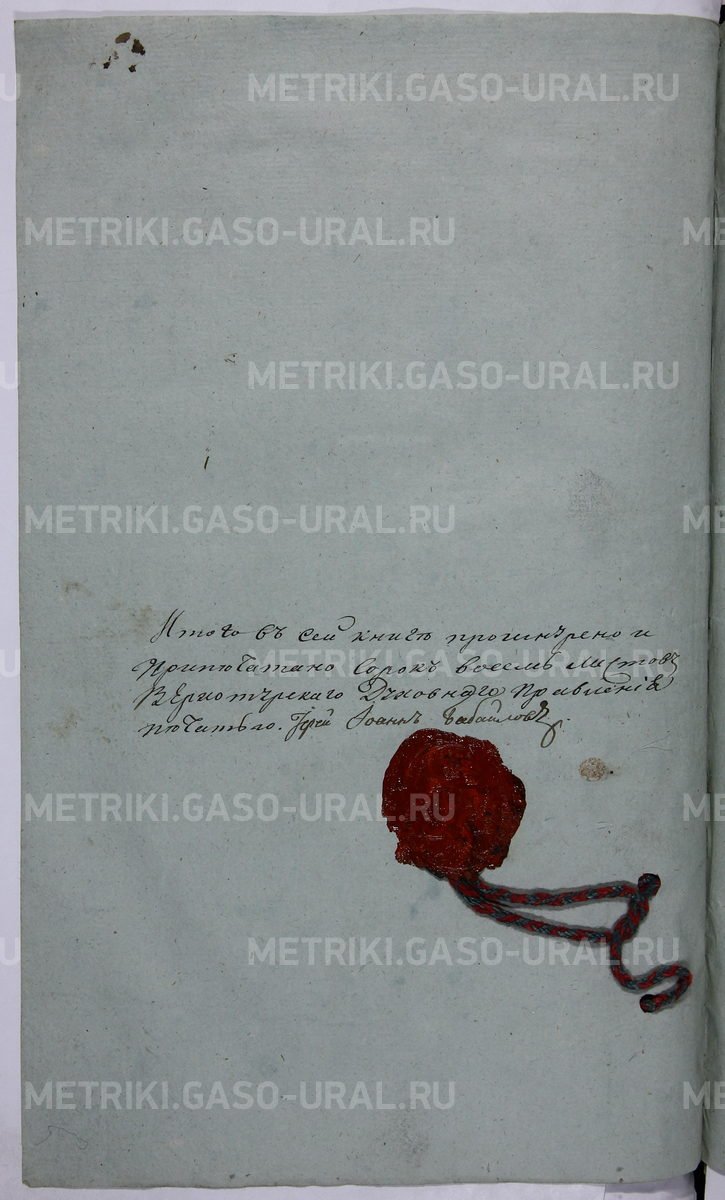 METRIKI.GASO-URAL.RU
METRIKI.GASO-URAL.RU
METRIKI.GASO-URAL.RU
METRIKI.GASO-URAL.RU
Итого въ сей книгѣ прошнурено и
припечатано Сорокъ восемь листовъ
Верхотурскаго Духовнаго Правленія
печатью. Іерей Іоаннъ
METRIKI.GASO-URAL.RU
METRIKI.GASO-URAL.RU
METRIKI.GASO-URAL.RU
METRIKI.GASO-URAL.RU